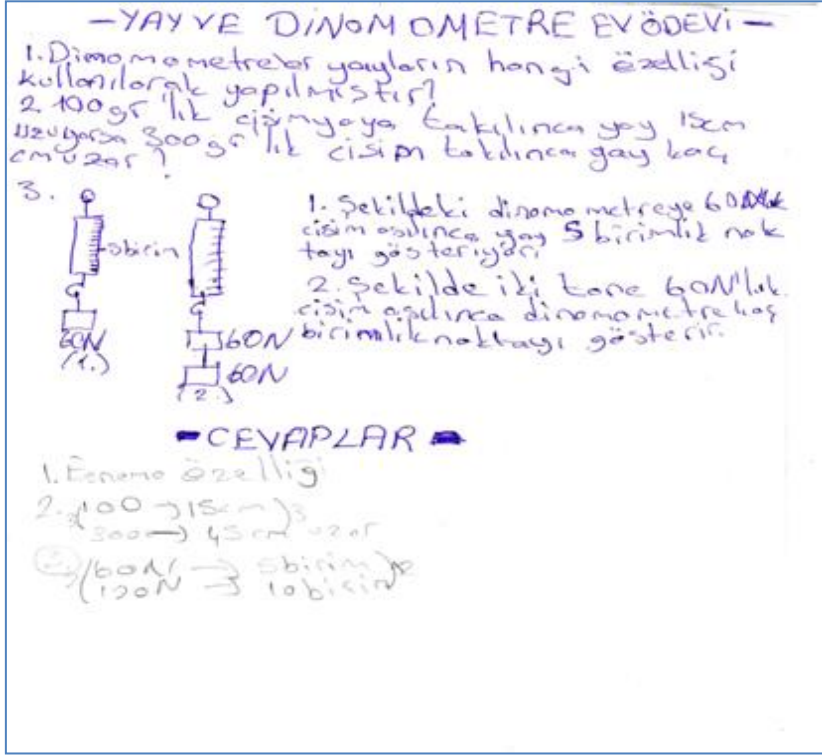 -YAY VE DİNOMOMETRE EV ÖDEVİ-
1. Dinomometreler yayların hangi özelliği
kullanılarak yapılmıştır?
2. 100 gr'lık cisim yaya takılınca yay 15cm
uzuyorsa 300gr'lık cisim takılınca yay kaç
cm uzar?
3.
5birim
60N
(1.)
60N
60N
(2.)
1. Şekildeki dinomometreye 60N'luk
cisim asılınca yay 5 birimlik nok
tayı gösteriyor.
2. Şekilde iki tane 60N'luk
cisim asılınca dinomometre kaç
birimlik noktayı gösterir.
-CEVAPLAR-
1. Esneme özelliği
2. (100 → 15cm) 3
300 → 45 cm uzar
60N → 5birim
120N → 10birim